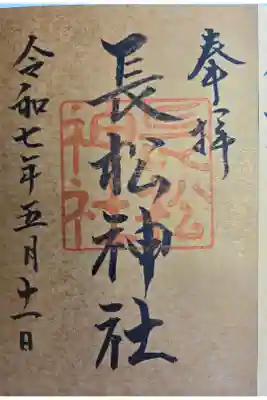 奉拝
長松神社
令和七年五月十一日
長松神社